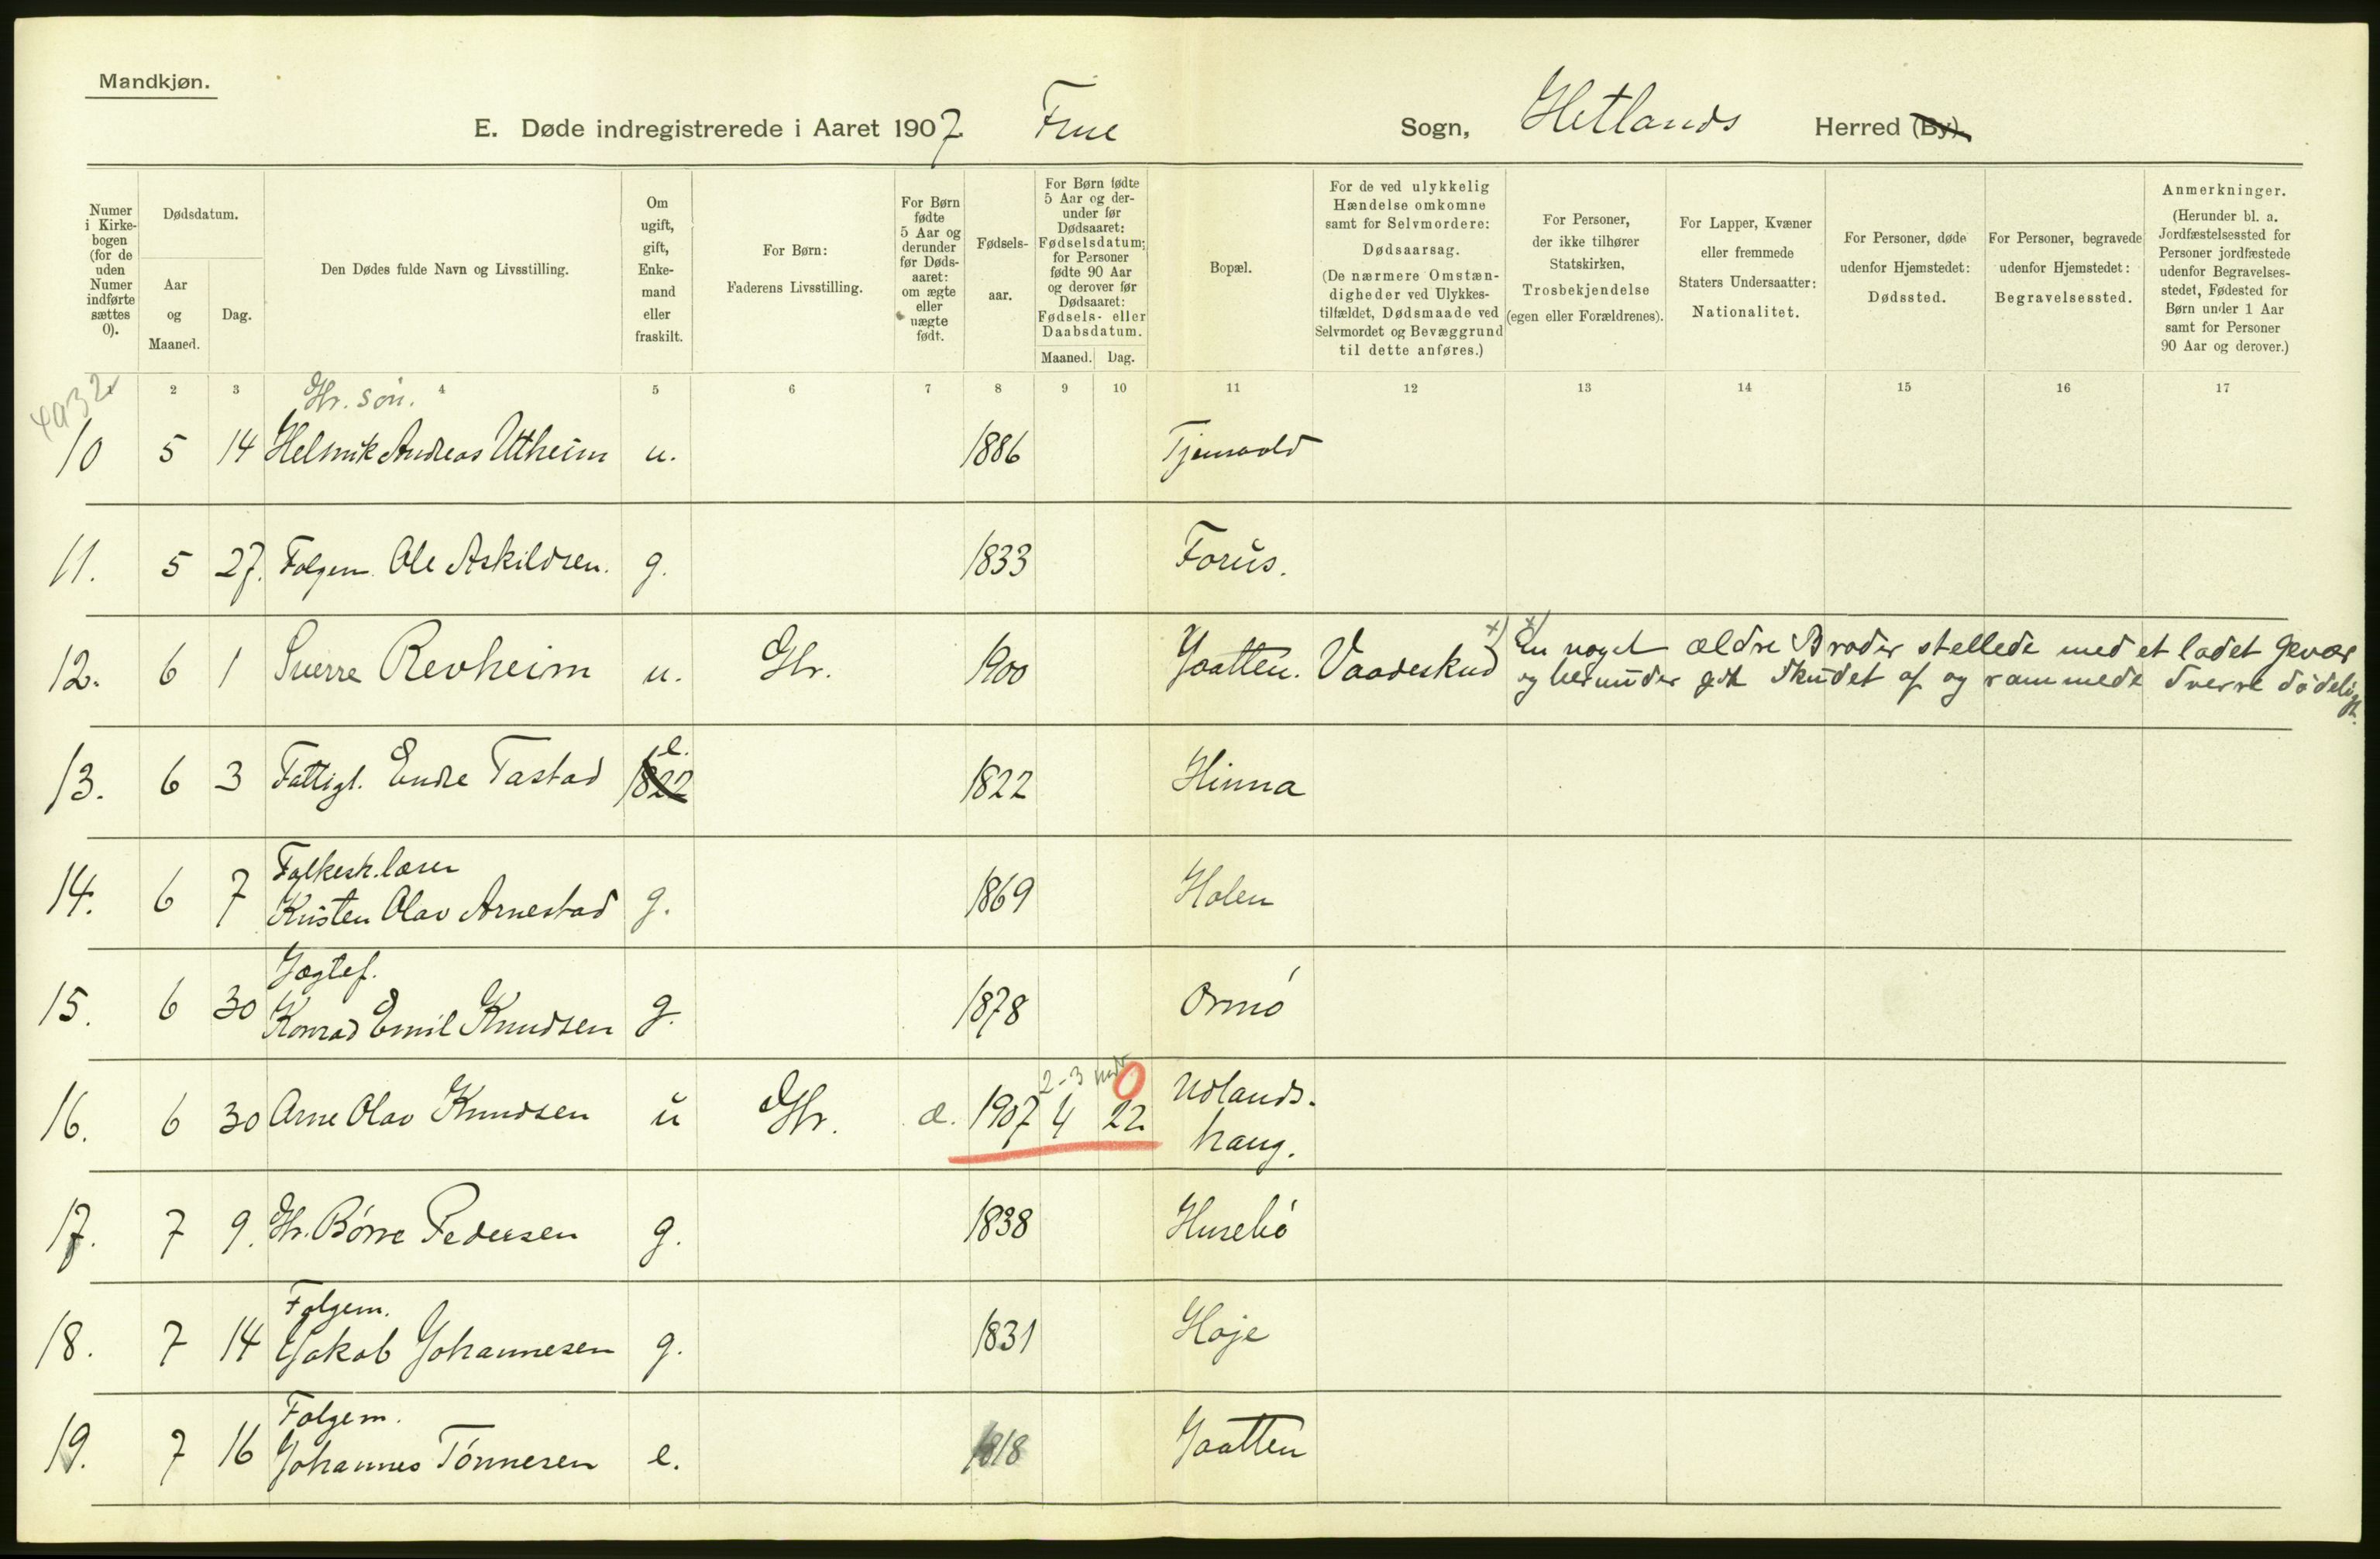 Mandkjøn.
E. Døde indregistrerede i Aaret 1907. Frue Sogn, Hetlands Herred (By).
Numer i Kirkebogen (for de uden Numer indførte sættes 0).
Dødsdatum.
Aar og Maaned.
Dag.
Den Dødes fulde Navn og Livsstilling.
Om ugift, gift, Enkemand eller fraskilt.
For Børn: Faderens Livsstilling.
For Børn fødte 5 Aar og derunder før Dødsaaret: om ægte eller uægte født.
Fødselsaar.
For Børn fødte 5 Aar og derunder før Dødsaaret: Fødselsdatum; for Personer fødte 90 Aar og derover før Dødsaaret: Fødsels- eller Daabsdatum.
Maaned. Dag.
Bopæl.
For de ved ulykkelig Hændelse omkomne samt for Selvmordere: Dødsaarsag. (De nærmere Omstændigheder ved Ulykkestilfældet, Dødsmaade ved Selvmordet og Bevæggrund til dette anføres.)
For Personer, der ikke tilhører Statskirken, Trosbekjendelse (egen eller Forældrenes).
For Lapper, Kvæner eller fremmede Staters Undersaatter: Nationalitet.
For Personer, døde udenfor Hjemstedet: Dødssted.
For Personer, begravede udenfor Hjemstedet: Begravelsessted.
Anmerkninger. (Herunder bl. a. Jordfæstelsessted for Personer jordfæstede udenfor Begravelsesstedet, Fødested for Børn under 1 Aar samt for Personer 90 Aar og derover.)
2 3 4 5 6 7 8 9 10 11 12 13 14 15 16 17
Gbr. søn.
10 5 14 Helmik Andreas Utheim u. 1886 Tjensvold
11. 5 27. Folgem. Ole Askildsen. g. 1833 Forus.
12. 6 1 Sverre Revheim u. Gbr. 1900 Jaatten. Vaadeskud x) x) En noget ældre Broder stellede med et ladet Gevær
og herunder gik Skudet af og rammede Sverre dødeligt.
13. 6 3 Fattigl. Endre Tastad 1822 e. 1822 Hinna
Folkesk.lærer
14. 6 7 Kristen Olav Arnestad g. 1869 Holen
Jagtef.
15. 6 30 Konrad Emil Knudsen g. 1878 Ormø
2-3 0
16. 6 30 Arne Olav Knudsen u Gbr. æ. 1907 4 22 Udlands-
haug.
17. 7 9. Gbr. Børre Pedersen g. 1838 Husebø
Folgem.
18. 7 14 Jakob Johannesen g. 1831 Hoje
Folgem.
19. 7 16 Johannes Tónnesen e. 1818 Jaatten